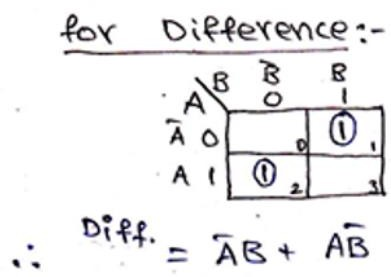 for Difference:-
B B̄ B
A 0 1
Ā 0 0 1 1
A 1 1 2 3
∴ Diff. = ĀB + AB̄